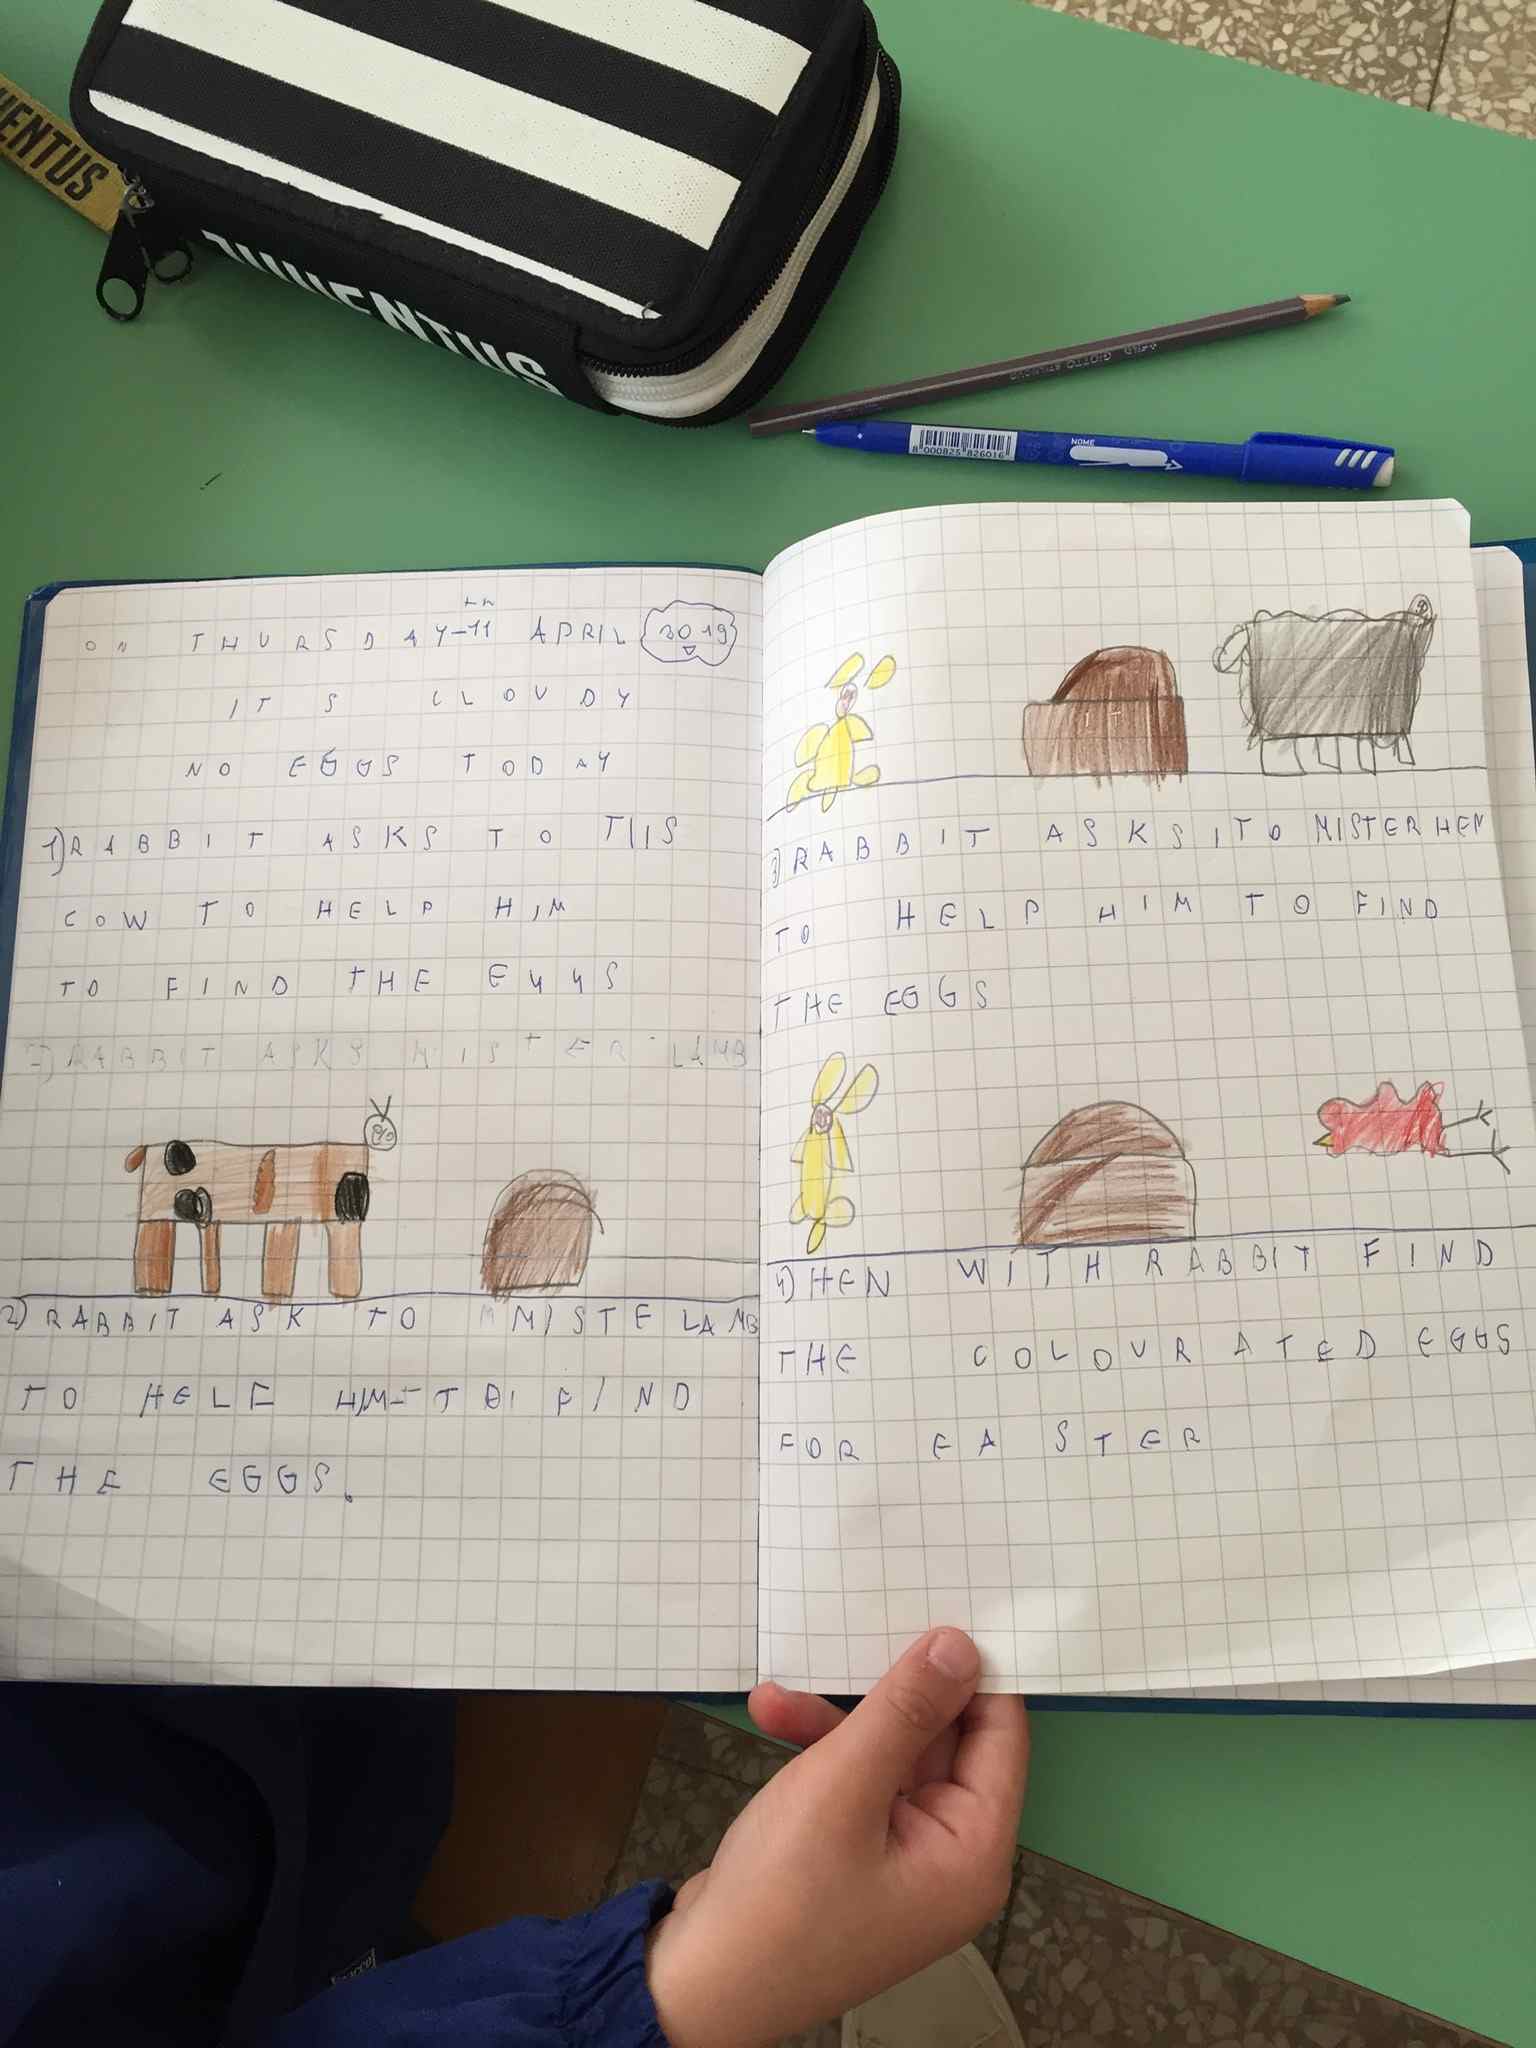 JUVENTUS
GIOTTO
8 000825 826016
NOME
ON THURSDAY-11TH APRIL 2019
IT S CLOUDY
NO EGGS TODAY
1) RABBIT ASKS TO THIS
COW TO HELP HIM
TO FIND THE EGGS
2) RABBIT ASKS MISTER LAMB
2) RABBIT ASK TO MISTE LAMB
TO HELP HIM TO FIND
THE EGGS.
3) RABBIT ASKS TO MISTER HEN
TO HELP HIM TO FIND
THE EGGS
4) HEN WITH RABBIT FIND
THE COLOURATED EGGS
FOR EASTER